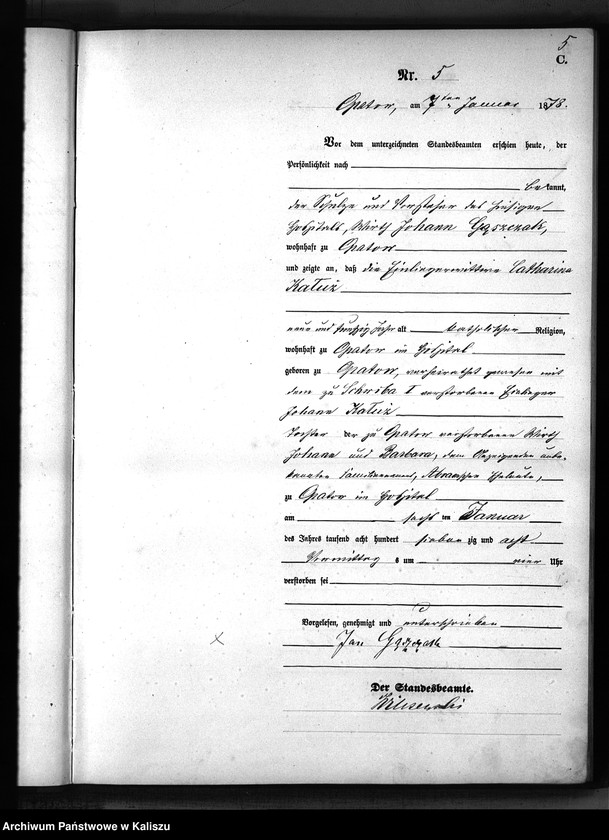 5
C.
Nr. 5
Opatow, am 7ten Januar 1878.
Vor dem unterzeichneten Standesbeamten erschien heute, der
Persönlichkeit nach
bekannt,
der Schulze und Vorsteher des hiesigen
Hospitals, Wirth Johann Gąszczak,
wohnhaft zu Opatow
und zeigte an, daß die Einliegerwittwe Catharina
Kałuż
neun und funfzig Jahr alt katholischer Religion,
wohnhaft zu Opatow im Hospital
geboren zu Opatow, verheirathet gewesen mit
dem zu Schwiba I verstorbenen Einlieger
Johann Kałuż
Tochter der zu Opatow verstorbenen Wirth
Johann und Barbara, dem Anzeigenden unbe-
kannten Familiennamens, Eheleute,
zu Opatow im Hospital
am sechs ten Januar
des Jahres tausend acht hundert sieben zig und acht
Vormittag s um vier Uhr
verstorben sei
Vorgelesen, genehmigt und unterschrieben
Jan
Der Standesbeamte.
Archiwum Państwowe w Kaliszu